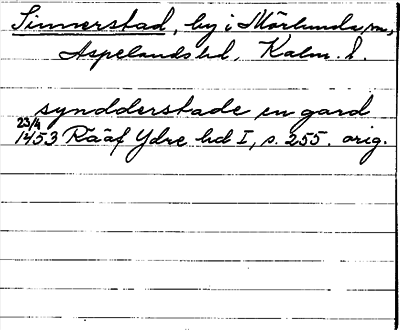 Sinnerstad, by i Mörlunda sn,
Aspelands hd, Kalm. l.
syndderstade en gard
23/4
1453 Rääf Ydre hd I, s. 255. orig.